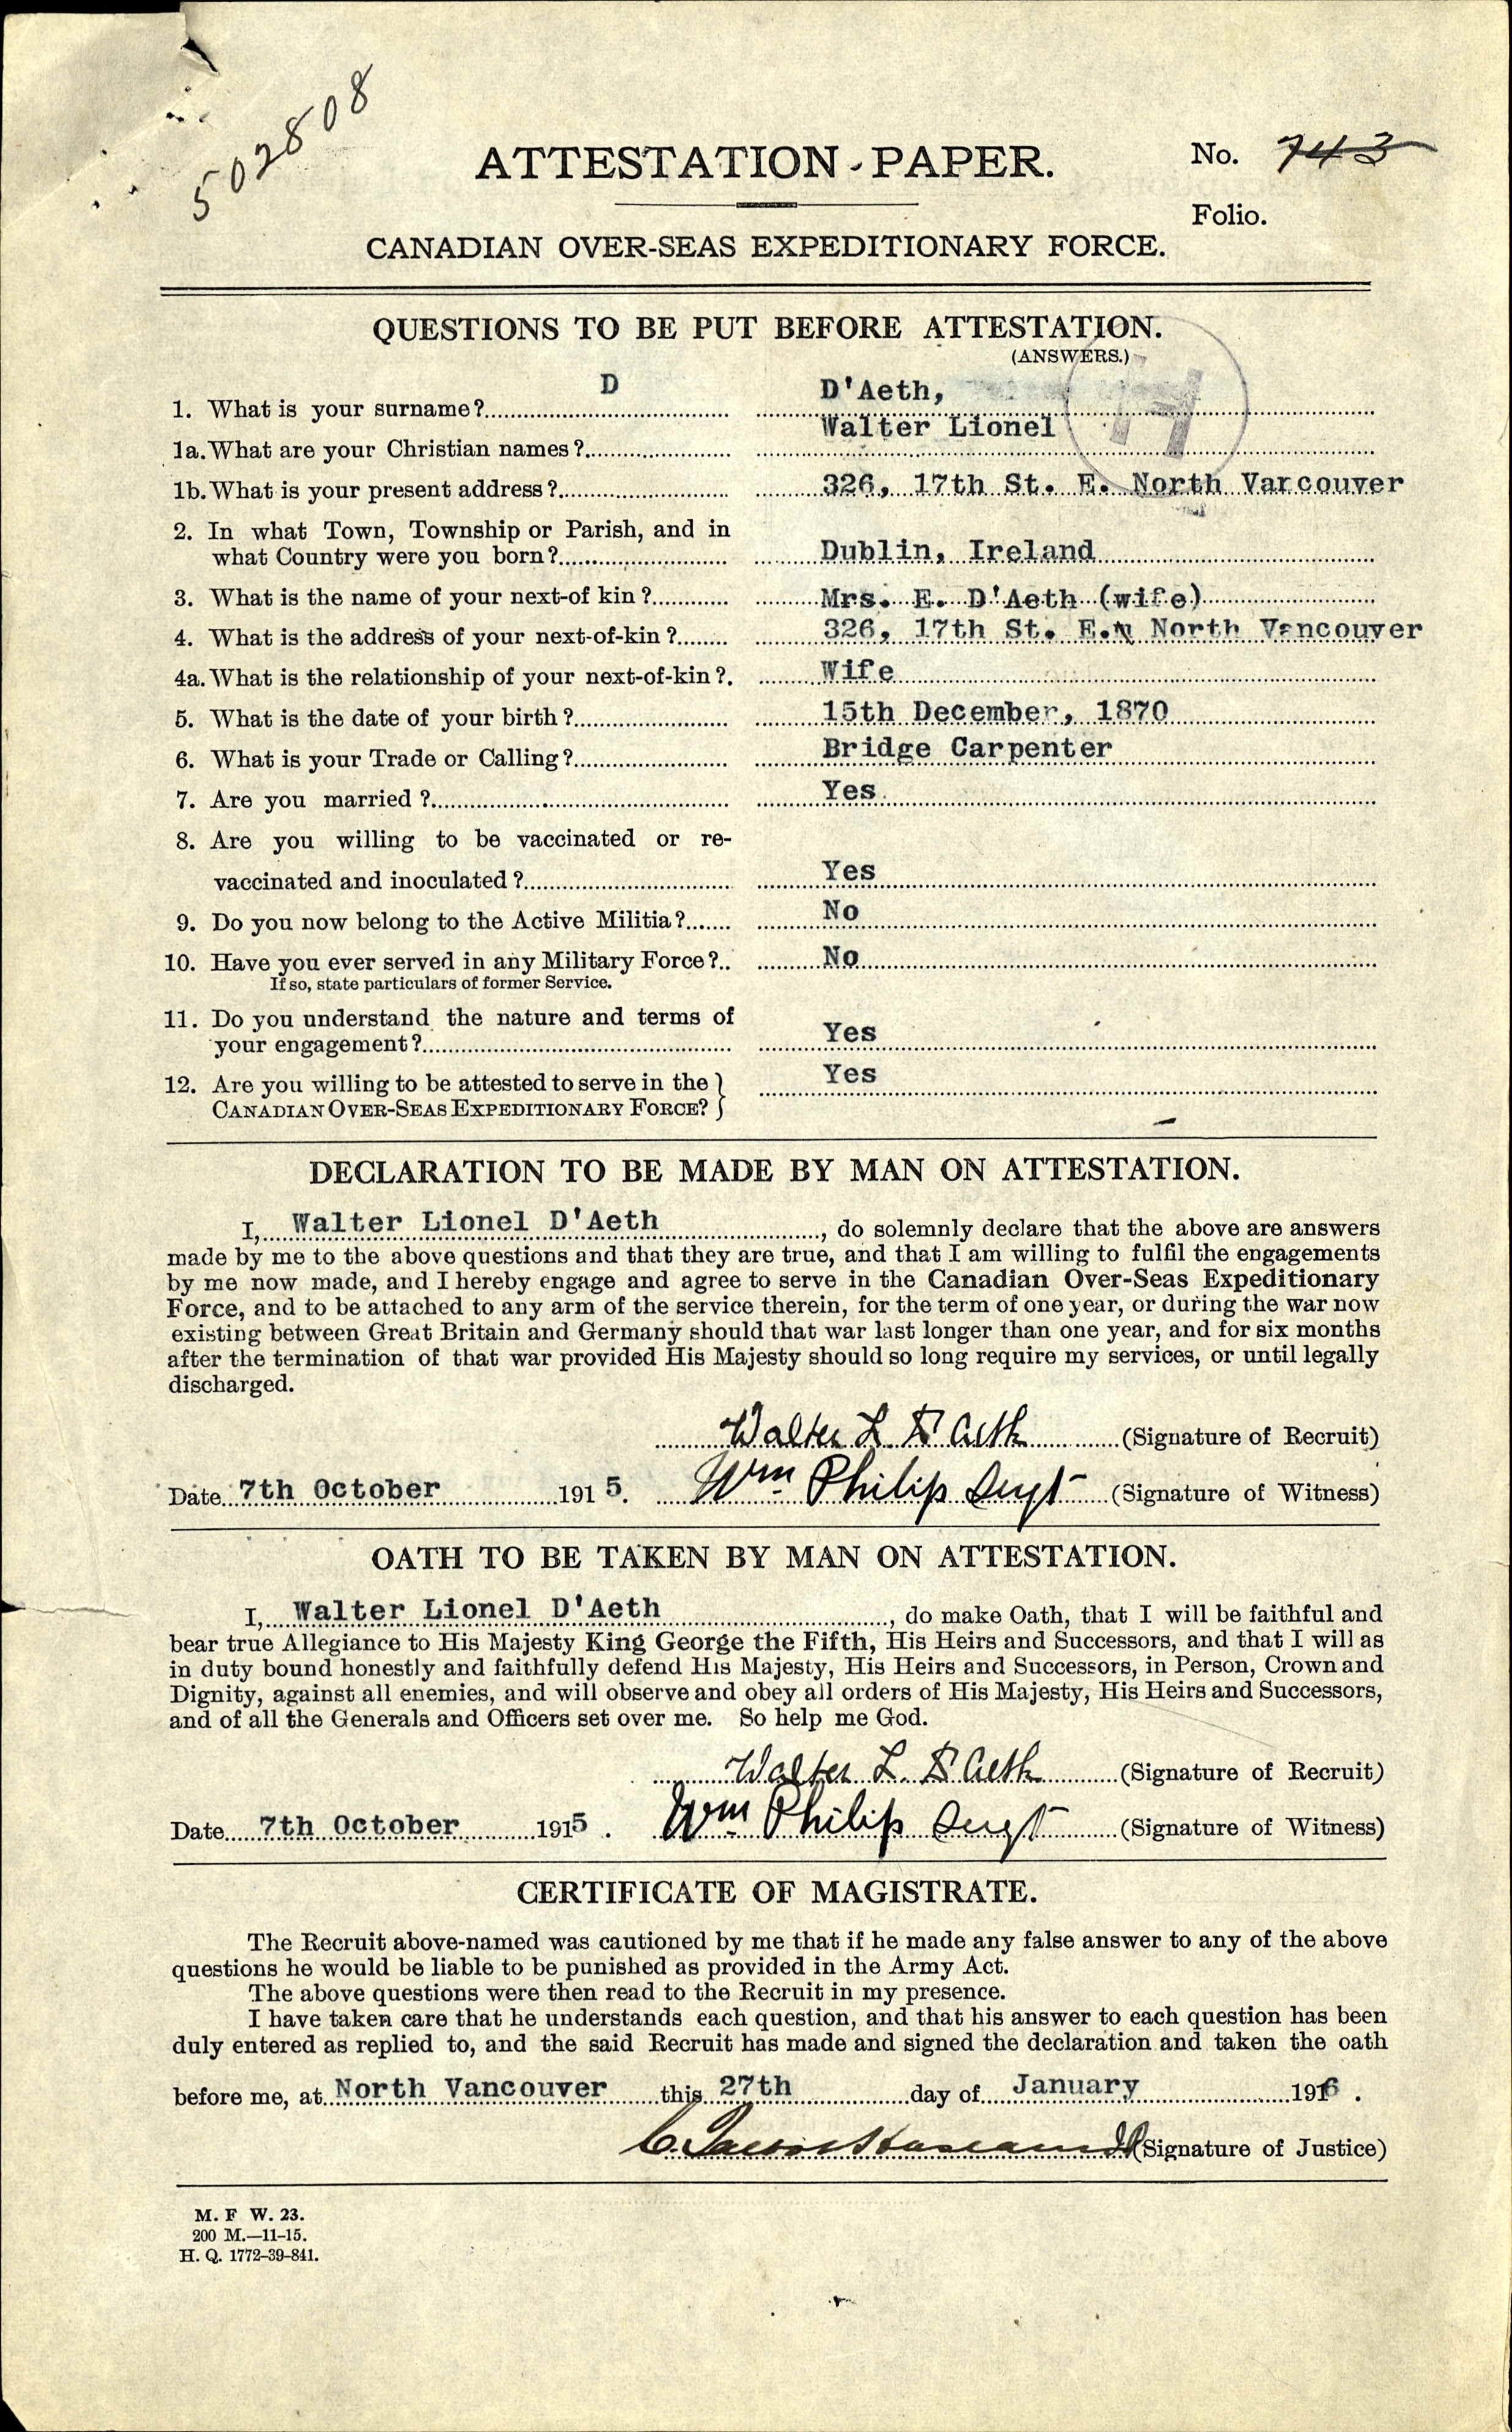 502808
ATTESTATION PAPER.
No. 743
Folio.
CANADIAN OVER-SEAS EXPEDITIONARY FORCE.
QUESTIONS TO BE PUT BEFORE ATTESTATION.
(ANSWERS.)
D
1. What is your surname? D'Aeth,
1a. What are your Christian names? Walter Lionel
1b. What is your present address? 326, 17th St. E. North Varcouver
2. In what Town, Township or Parish, and in
what Country were you born? Dublin, Ireland
3. What is the name of your next-of kin? Mrs. E. D'Aeth (wife)
4. What is the address of your next-of-kin? 326, 17th St. E. North Vancouver
4a. What is the relationship of your next-of-kin?. Wife
5. What is the date of your birth? 15th December, 1870
6. What is your Trade or Calling? Bridge Carpenter
7. Are you married? Yes
8. Are you willing to be vaccinated or re-
vaccinated and inoculated? Yes
9. Do you now belong to the Active Militia? No
10. Have you ever served in any Military Force?.. No
If so, state particulars of former Service.
11. Do you understand the nature and terms of
your engagement? Yes
12. Are you willing to be attested to serve in the Yes
CANADIAN OVER-SEAS EXPEDITIONARY FORCE?
DECLARATION TO BE MADE BY MAN ON ATTESTATION.
I, Walter Lionel D'Aeth, do solemnly declare that the above are answers
made by me to the above questions and that they are true, and that I am willing to fulfil the engagements
by me now made, and I hereby engage and agree to serve in the Canadian Over-Seas Expeditionary
Force, and to be attached to any arm of the service therein, for the term of one year, or during the war now
existing between Great Britain and Germany should that war last longer than one year, and for six months
after the termination of that war provided His Majesty should so long require my services, or until legally
discharged.
Walter L. D'Aeth (Signature of Recruit)
Date 7th October 1915. Wm Philip Sergt (Signature of Witness)
OATH TO BE TAKEN BY MAN ON ATTESTATION.
I, Walter Lionel D'Aeth, do make Oath, that I will be faithful and
bear true Allegiance to His Majesty King George the Fifth, His Heirs and Successors, and that I will as
in duty bound honestly and faithfully defend His Majesty, His Heirs and Successors, in Person, Crown and
Dignity, against all enemies, and will observe and obey all orders of His Majesty, His Heirs and Successors,
and of all the Generals and Officers set over me. So help me God.
Walter L. D'Aeth (Signature of Recruit)
Date 7th October 1915. Wm Philip Sergt (Signature of Witness)
CERTIFICATE OF MAGISTRATE.
The Recruit above-named was cautioned by me that if he made any false answer to any of the above
questions he would be liable to be punished as provided in the Army Act.
The above questions were then read to the Recruit in my presence.
I have taken care that he understands each question, and that his answer to each question has been
duly entered as replied to, and the said Recruit has made and signed the declaration and taken the oath
before me, at North Vancouver this 27th day of January 1916.
(Signature of Justice)
M. F W. 23.
200 M.—11-15.
H. Q. 1772-39-841.